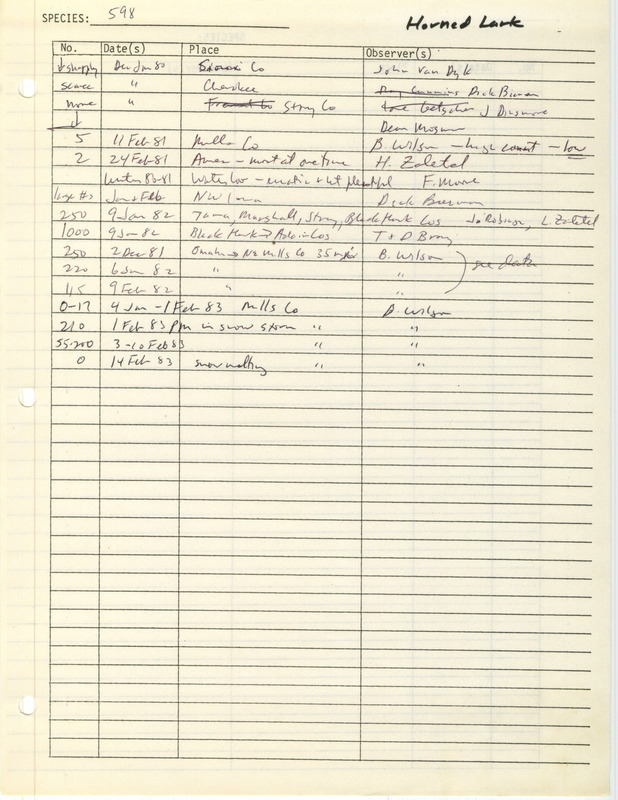 SPECIES: 598
Horned Lark
No. Date(s) Place Observer(s)
↓ sharply Dec Jan 80 Sioux Co John Van Dyk
scarce " Cherokee Dick Bierman
none " Story Co J Dinsmore
↓ Dean Mosman
5 11 Feb 81 Mills Co B. Wilson - high count - low
2 24 Feb 81 Ames - most at one time H. Zaletel
Winter 80-81 Waterloo - erratic + not plentiful F. Moore
large #s Jan + Feb NW Iowa Dick Bierman
250 9 Jan 82 Tama, Marshall, Story, Black Hawk Cos Jo Robinson, L. Zaletel
1000 9 Jan 82 Black Hawk → Adair Cos T + D Bray
250 2 Dec 81 Omaha → NE Mills Co 35 miles B. Wilson
220 6 Jan 82 " " see data
115 9 Feb 82 " "
0-17 4 Jan - 1 Feb 83 Mills Co B. Wilson
210 1 Feb 83 pm in snow storm " "
55-200 3-10 Feb 83 " "
0 14 Feb 83 snow melting " "